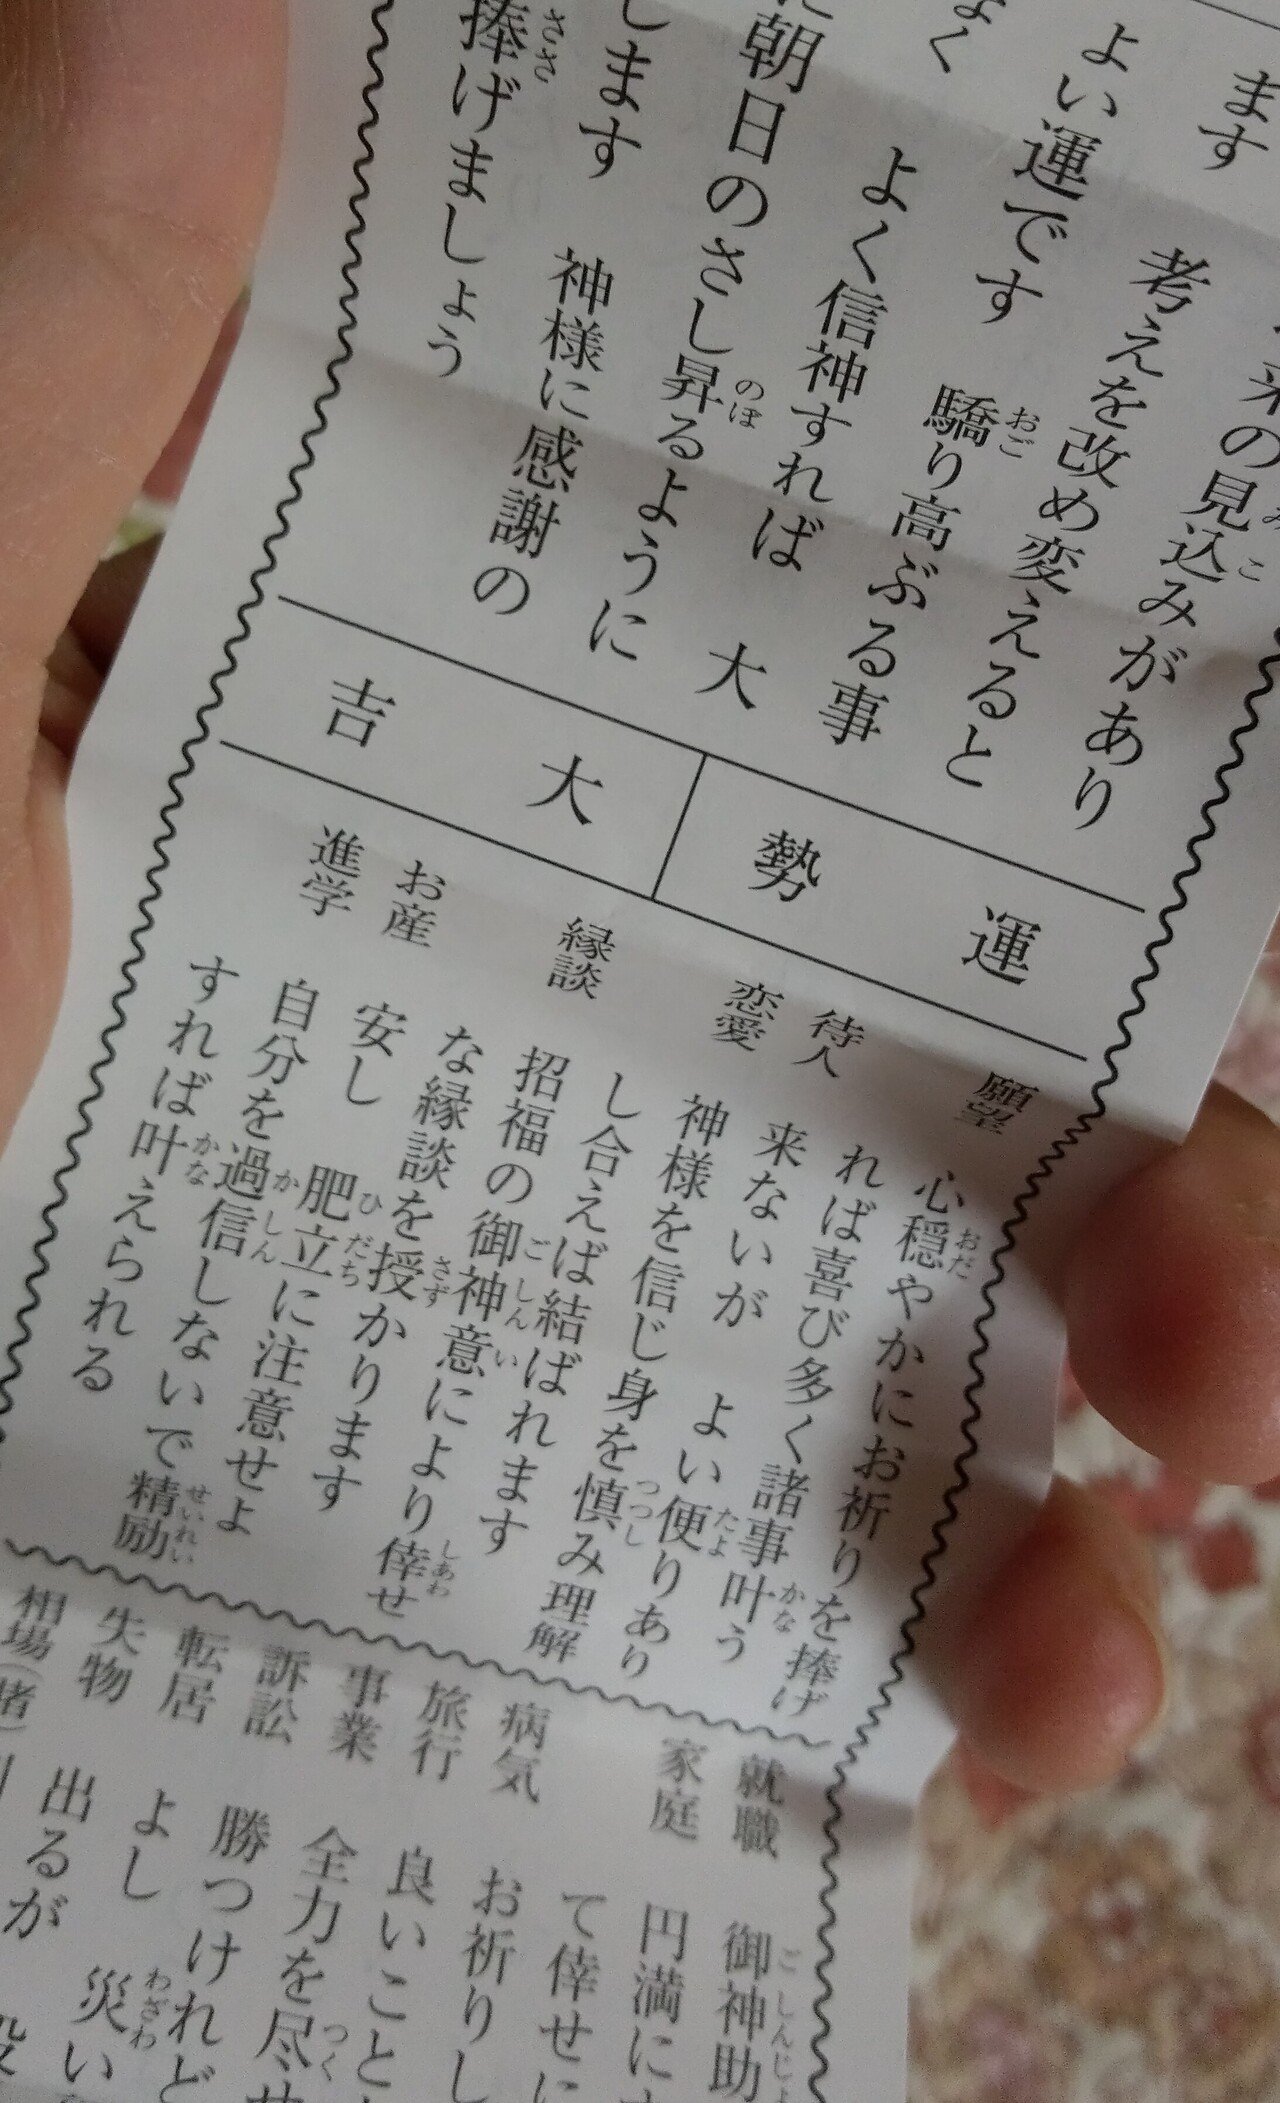 ます
来の見込みがあり
考えを改め変えると
よい運です 驕り高ぶる事
よく
よく信神すれば 大
に朝日のさし昇るように
します 神様に感謝の
捧げましょう
運勢 大吉
願望 心穏やかにお祈りを捧げ
れば喜び多く諸事叶う
待人 来ないが よい便りあり
恋愛 神様を信じ身を慎み理解
し合えば結ばれます
縁談 招福の御神意により倖せ
な縁談を授かります
お産 安し 肥立に注意せよ
進学 自分を過信しないで精励
すれば叶えられる
就職 御神助
家庭 円満に
て倖せに
病気 お祈りし
旅行 良いこと
事業 全力を尽せ
訴訟 勝つけれど
転居 よし 災い
失物 出るが
相場(賭)